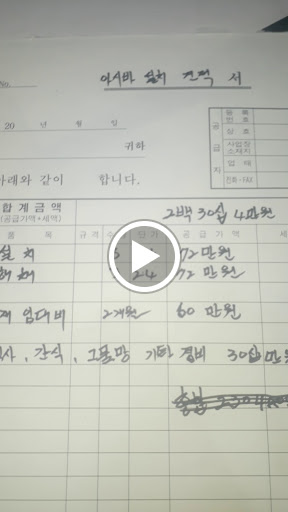 No.
아시바 설치 견적서
20 년 월 일
귀하
아래와 같이 합니다.
공 급 자
등록번호
상호
사업장소재지
업태
전화·FAX
합계금액
(공급가액+세액)
2백30십4만원
품목 규격 수 단가 공급가액 세
설치 72만원
해체 24 72만원
임대비 2개월 60만원
, 간식, 그물망 기타 경비 30십만원